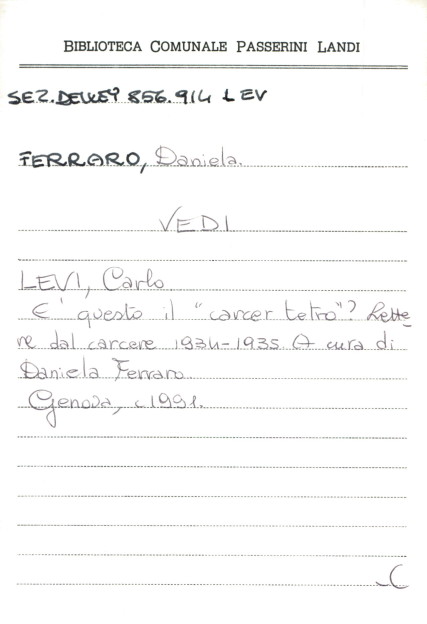 BIBLIOTECA COMUNALE PASSERINI LANDI
SEZ. DEWEY 856.914 LEV
FERRARO, Daniela.
VEDI
LEVI, Carlo
E' questo il "carcer tetro"? Lette_
re dal carcere 1934-1935. A cura di
Daniela Ferraro
Genova, c1991.